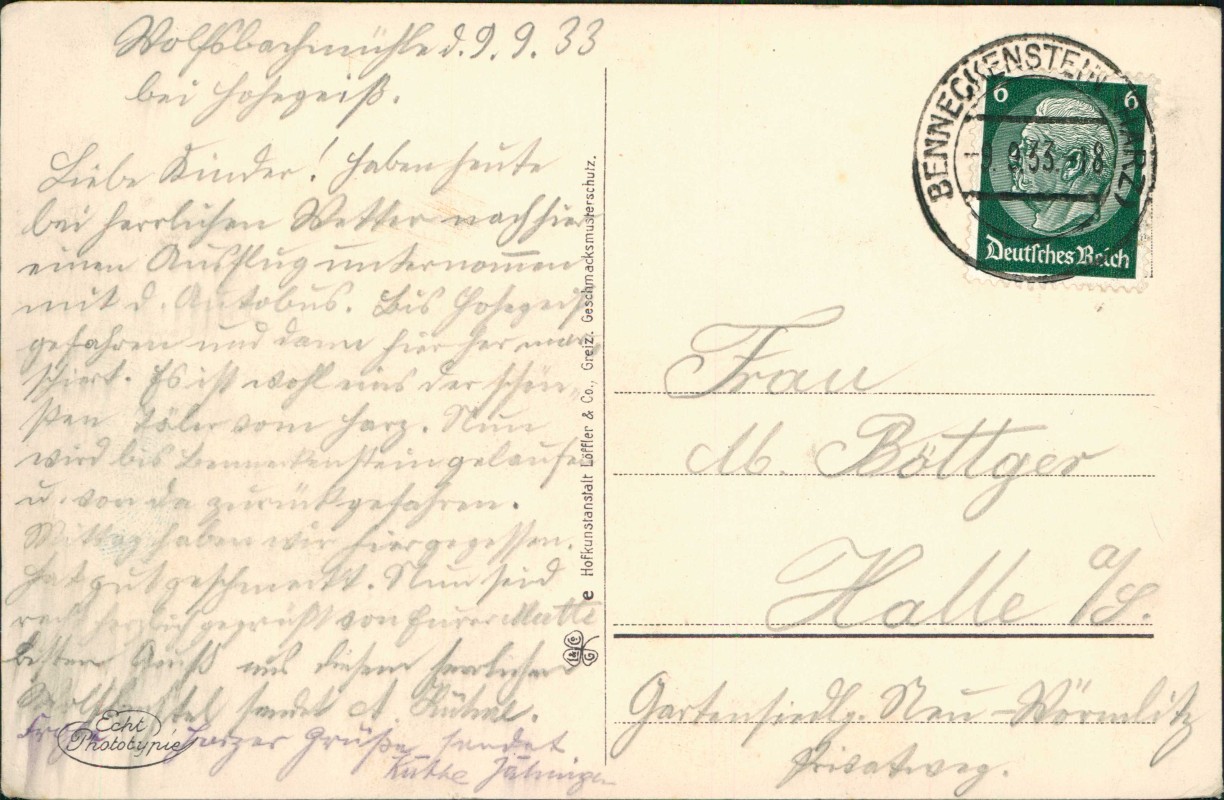 Wolfsbachmühle d. 9. 9. 33
bei Hohegeiß.
Liebe Kinder! Haben heute
bei herrlichen Wetter nach hier
einen Ausflug unternom̅en
mit d. Autobus. Bis Hohegeiß
gefahren und dann hier her mar-
schiert. Es ist wohl eins der schön-
sten Täler vom Harz. Nun
wird bis Benneckenstein gelaufen
u. von da zurückgefahren.
Mittag haben wir hier gegessen.
Hat gut geschmeckt. Nun seid
recht herzlich gegrüßt von Eurer Mutter
besten Gruß aus diesem herrlichen
sendet
Harzer Grüße sendet
Käthe
Echt
Phototypie
e Hofkunstanstalt Löffler & Co., Greiz. Geschmacksmusterschutz.
L&C G
BENNECKENSTEIN (HARZ)
9.9.33.
6 6
Deutsches Reich
Frau
M. Böttger
Halle a/S.
Gartensiedlg. Neu-Wörmlitz
Privatweg.